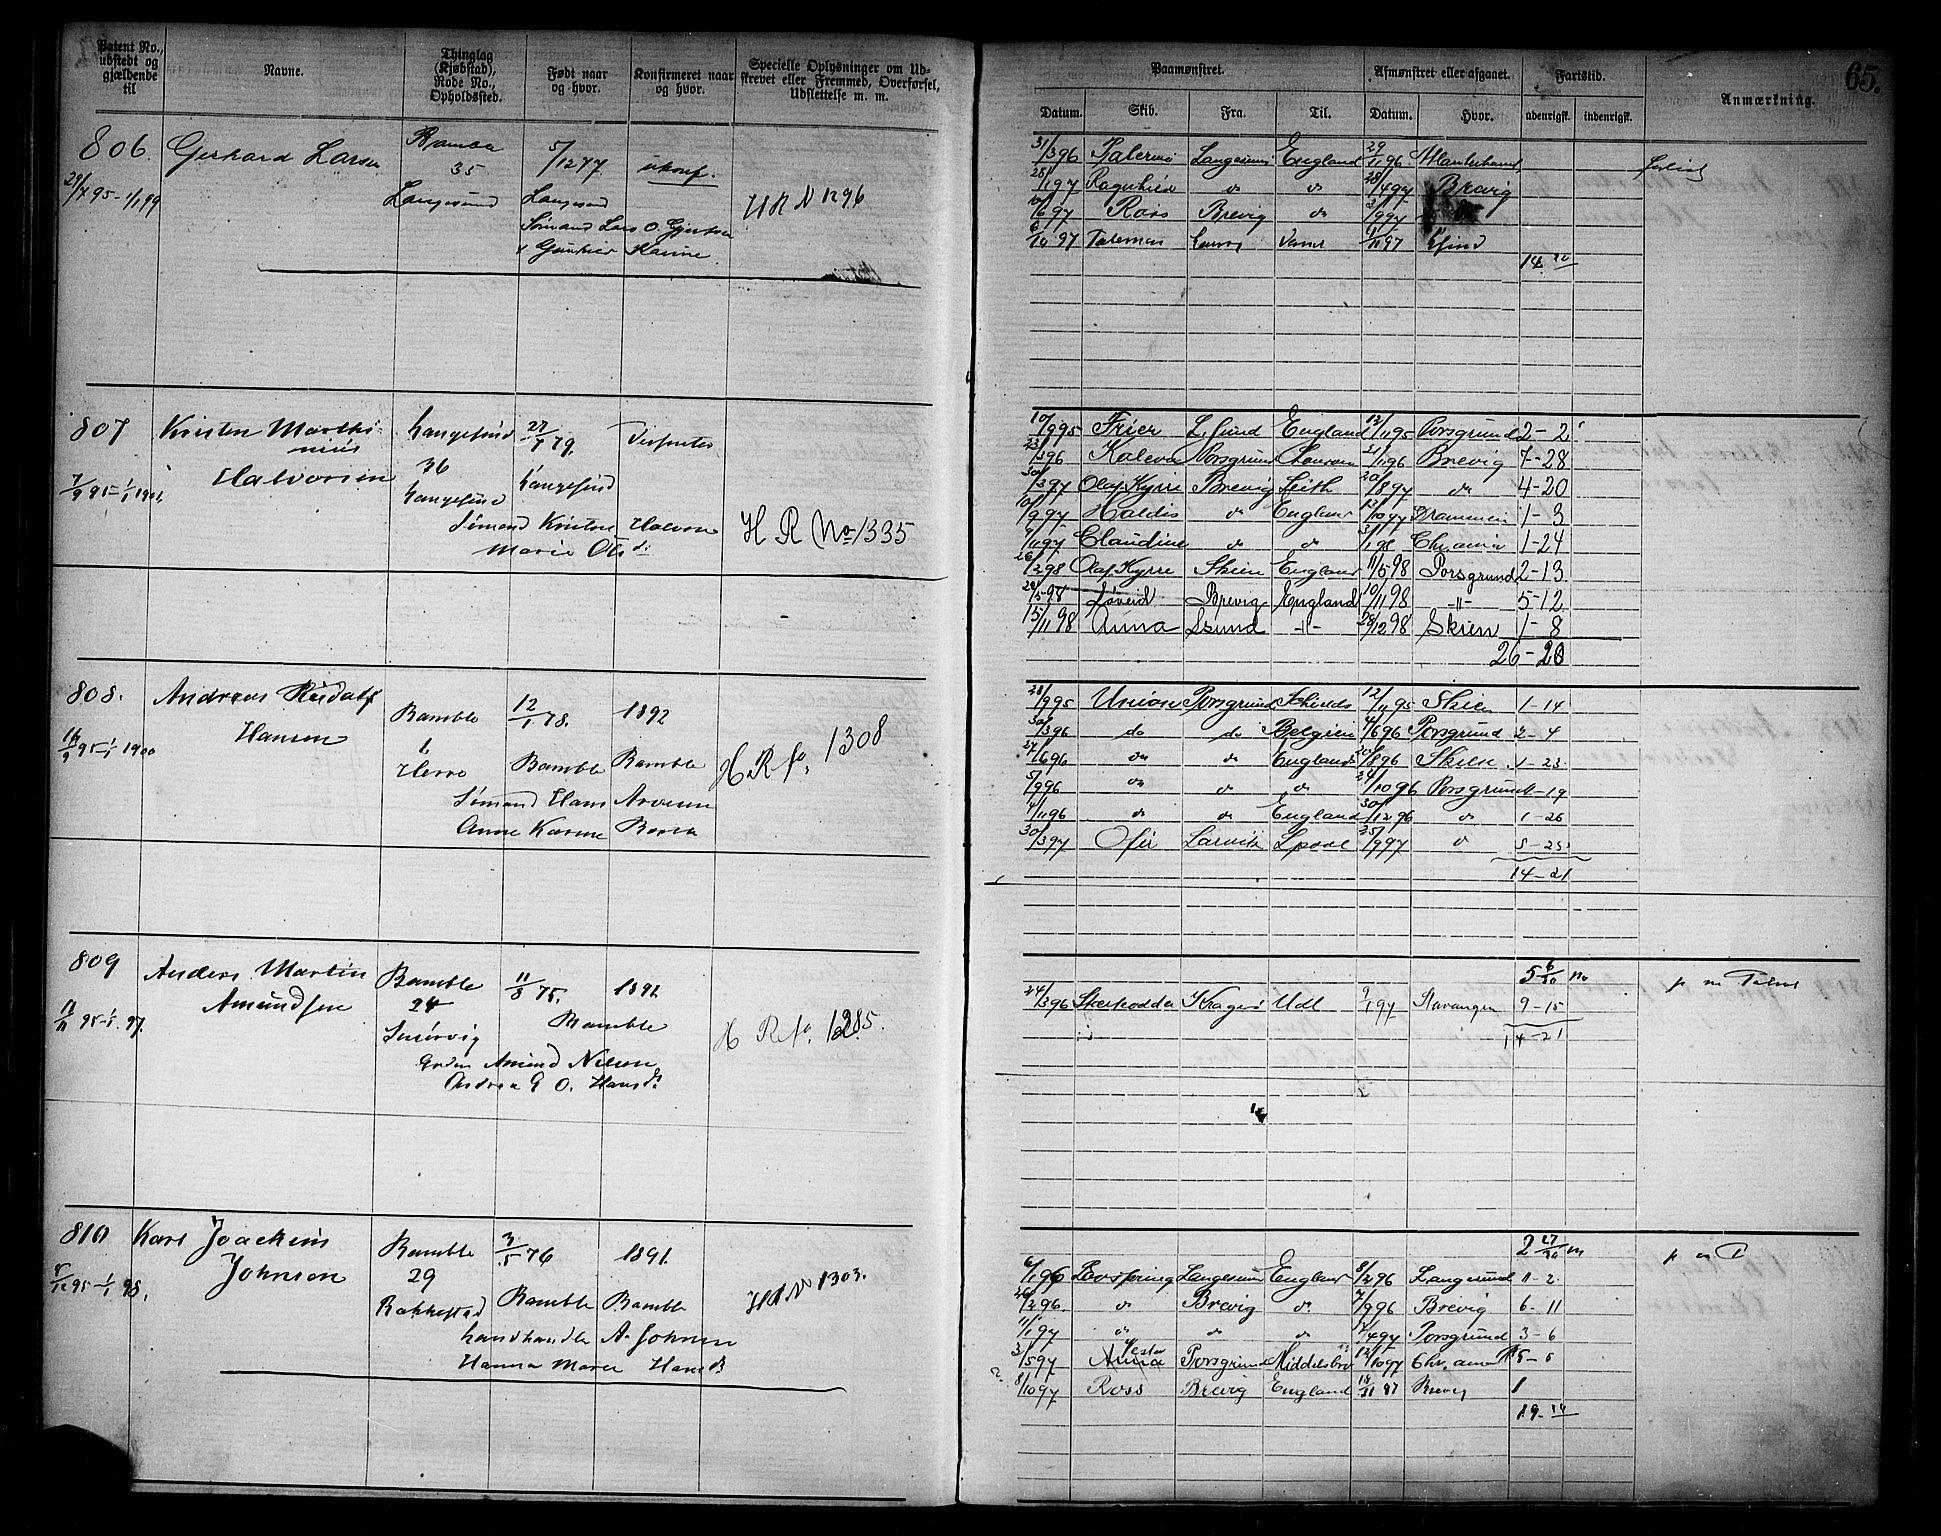 Patent No., udstedt og gjældende til
Navne.
Thinglag (Kjøbstad), Rode No., Opholdssted.
Født naar og hvor.
Konfirmeret naar og hvor.
Specielle Oplysninger om Udskrevet eller Fremmed, Overførsel, Udslettelse m. m.
Paamønstret.
Afmønstret eller afgaaet.
Fartstid.
Anmærkning.
65.
Datum. Skib. Fra. Til. Datum. Hvor. udenrigsk. indenrigsk.
806. Gerhard Larsen Bamble 5/12 77 ukonf.
35
29/7 95 - 1/1 99 Langesund Langesund H R N 1296
Sømand Lars O. Gjertsen
31/3 96 Palermo Langesund England 29/11 96
28/1 97 Ragnhild do do 28/4 97 Brevig
10/6 97 Ross Brevig do 3/9 97
6/10 97
14 20
807 Kristen Marthinius Langesund 27/7 79.
Halvorsen 36
7/9 95 - 1/1 1901. Langesund Langesund
Sømand Kristen Halvorsen H R No 1335
Marie Olsdt
10/9 95 Frier L.sund England 12/11 95 Porsgrund 2-2
23/3 96 Kaleva Porsgrund 21/11 96 Brevig 7-28
30/3 97 Olaf Kyrre Brevig Leith 20/8 97 do 4-20
10/9 97 Haldis do England 13/10 97 Drammen 1-3
9/11 97 Claudine do do 3/1 98 Chr.ania 1-24
26/2 98 Olaf Kyrre Skien England 11/5 98 Porsgrund 2-13
29/5 98 Løveid Brevig England 10/11 98 -"- 5-12
15/11 98 Anna Lsund -"- 28/12 98 Skien 1-8
26-20
808. Andreas Rudolf Hansen Bamble 12/1 78. 1892
16/9 95 - 1/1 1900 1. H R No. 1308
Herre Bamble Bamble
Sømand Hans Arvesen
Anne Karine
28/9 95 Union Porsgrund Shields 12/11 95 Skien 1-14
30/3 96 do do Belgien 4/6 96 Porsgrund 2-4
27/6 96 do do England 20/8 96 Skien 1-23
5/9 96 do do do 24/10 96 Porsgrund 1-19
4/11 96 do do England 30/12 96 do 1-26
30/3 97 Ofir Larvik Lpool 25/9 97 do 5-25
14-21
809 Anders Martin Amundsen Bamble 11/8 75. 1891
24
11/11 95 - 1/1 97. Bamble H R No. 1285.
Amund Nilsen
Andrea G O. Hansdt
5 6/30 m
24/3 96 Kragerø Udl 9/1 97 Stavanger 9-15
14-21
810 Karl Joachim Johnsen Bamble 3/5 76 1891.
29
5/12 95 - 1/1 98. Rakkestad Bamble Bamble H R No 1303.
Landhandler A. Johnsen
Hanna Marie Hansdt
2 27/30 m
6/1 96 Lovspring Langesund England 8/2 96 Langesund 1-2
26/2 96 do Brevig do 7/9 96 Brevig 6-11
11/1 97 do do do 17/4 97 Porsgrund 3-6
3/5 97 Porsgrund Middelsbro 12/10 97 Chr.ania 5-5
8/10 97 Ross Brevig England 18/11 97 Brevig 1
19-14